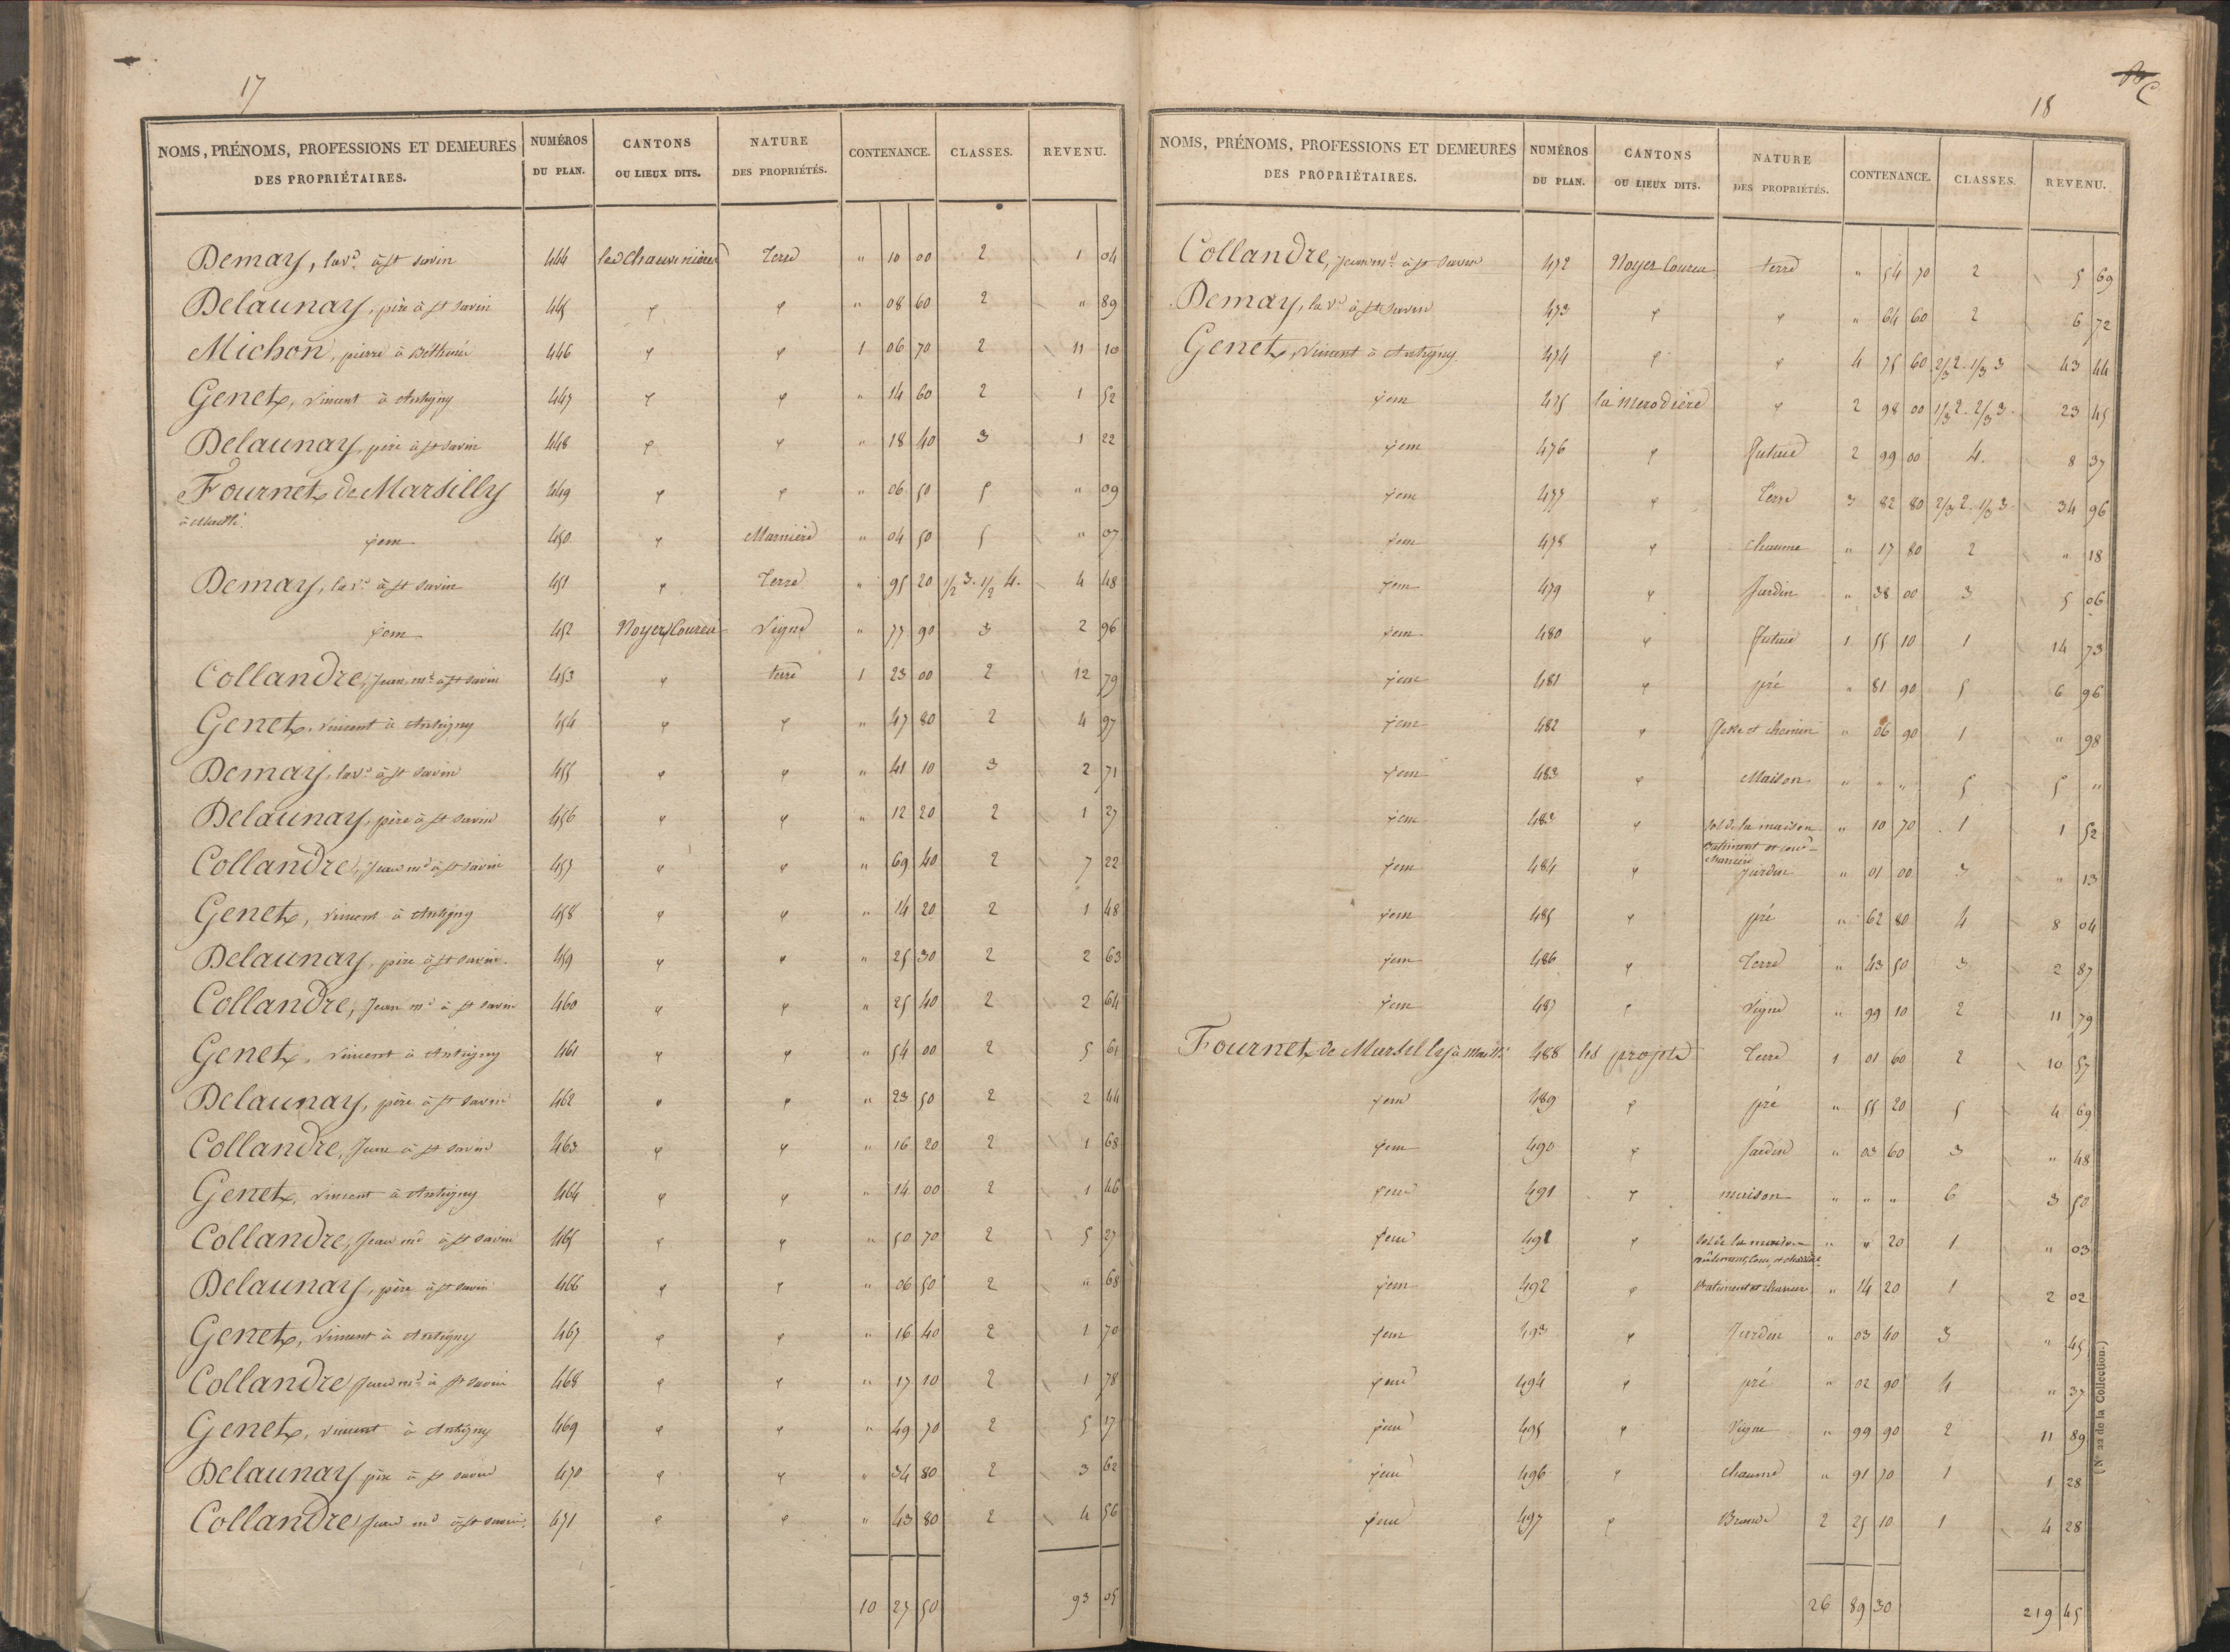 17
NOMS, PRÉNOMS, PROFESSIONS ET DEMEURES DES PROPRIÉTAIRES. NUMÉROS DU PLAN. CANTONS OU LIEUX DITS. NATURE DES PROPRIÉTÉS. CONTENANCE. CLASSES. REVENU.
Demay, la ve à st Savin 444 les Chauvinières Terre " 10 00 2 1 04
Delaunay, père à st Savin 445 φ φ " 08 60 2 " 89
Michon, pierre à Béthines 446 φ φ 1 06 70 2 11 10
Genet, vincent à Antigny 447 φ φ " 14 60 2 1 52
Delaunay, père à st Savin 448 φ φ " 18 40 3 1 22
Fournet de Marsilly 449 φ φ " 06 50 5 " 09
à Maillé
jem 450 φ Marnière " 04 50 5 " 07
Demay, la ve à st Savin 451 φ Terre " 95 20 1/2 3. 1/2 4. 4 48
jem 452 Noyer Coureau Vigne " 77 90 3 2 96
Collandre, Jean md à st Savin 453 φ terre 1 23 00 2 12 79
Genet, vincent à Antigny 454 φ φ " 47 80 2 4 97
Demay, la ve à st Savin 455 φ φ " 41 10 3 2 71
Delaunay, père à st Savin 456 φ φ " 12 20 2 1 27
Collandre, Jean md à st Savin 457 φ φ " 69 40 2 7 22
Genet, vincent à Antigny 458 φ φ " 14 20 2 1 48
Delaunay, père à st Savin 459 φ φ " 25 30 2 2 63
Collandre, Jean md à st Savin 460 φ φ " 25 40 2 2 64
Genet, vincent à Antigny 461 φ φ " 54 00 2 5 61
Delaunay, père à st Savin 462 φ φ " 23 50 2 2 44
Collandre, Jean à st Savin 463 φ φ " 16 20 2 1 68
Genet, vincent à Antigny 464 φ φ " 14 00 2 1 46
Collandre, Jean md à st Savin 465 φ φ " 50 70 2 5 27
Delaunay, père à st Savin 466 φ φ " 06 50 2 " 68
Genet, vincent à Antigny 467 φ φ " 16 40 2 1 70
Collandre Jean md à st Savin 468 φ φ " 17 10 2 1 78
Genet, vincent à Antigny 469 φ φ " 49 70 2 5 17
Delaunay père à st Savin 470 φ φ " 34 80 2 3 62
Collandre Jean md à st Savin 471 φ φ " 43 80 2 4 56
10 27 50 93 05
18
NOMS, PRÉNOMS, PROFESSIONS ET DEMEURES DES PROPRIÉTAIRES. NUMÉROS DU PLAN. CANTONS OU LIEUX DITS. NATURE DES PROPRIÉTÉS. CONTENANCE. CLASSES. REVENU.
Collandre, Jean md à st Savin 472 Noyer Coureau terre " 54 70 2 5 69
Demay, la ve à st Savin 473 φ φ " 64 60 2 6 72
Genet, vincent à Antigny 474 φ φ 4 75 60 2/3 2. 1/3 3 43 44
jem 475 la merodière φ 2 98 00 1/3 2. 2/3 3. 23 45
jem 476 φ futaie 2 99 00 4. 8 37
jem 477 φ Terre 3 82 80 2/3 2. 1/3 3. 34 96
jem 478 φ Chaume " 17 80 2 " 18
jem 479 φ Jardin " 38 00 3 5 06
jem 480 φ futaie 1 55 10 1 14 73
jem 481 φ pré " 81 90 5 6 96
jem 482 φ et chemin " 06 90 1 " 98
jem 483 φ Maison " " " 5 5 "
jem 483 φ Sol de la maison " 10 70 1 1 52
Batiment et cour
jem 484 φ jardin " 01 00 3 " 13
jem 485 φ pré " 62 80 4 8 04
jem 486 φ Terre " 43 50 3 2 87
jem 487 φ Vigne " 99 10 2 11 79
Fournet de Marsilly à Maillé 488 les projets Terre 1 01 60 2 10 57
jem 489 φ pré " 55 20 5 4 69
jem 490 φ Jardin " 03 60 3 " 48
jem 491 φ maison " " " 6 3 50
jem 491 φ Sol de la maison " " 20 1 " 03
jem 492 φ Batiment et " 14 20 1 2 02
jem 493 φ Jardin " 03 40 3 " 45
jem 494 φ pré " 02 90 4 " 37
jem 495 φ Vigne " 99 90 2 11 89
jem 496 φ chaume " 91 70 1 1 28
jem 497 φ Brande 2 25 10 1 4 28
26 89 30 219 45
(N° 22 de la Collection.)